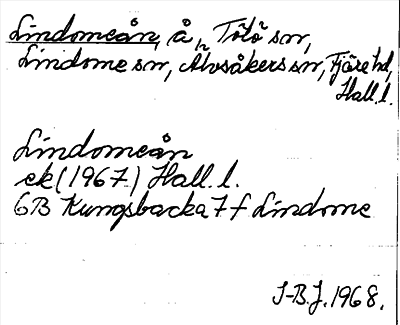 Lindomeån, å, Tölö sn,
Lindome sn, Älvsåkers sn, Fjäre hd,
Hall. l.
Lindomeån
ek (1967) Hall. l.
6B Kungsbacka 7 f Lindome
J-B.J. 1968.